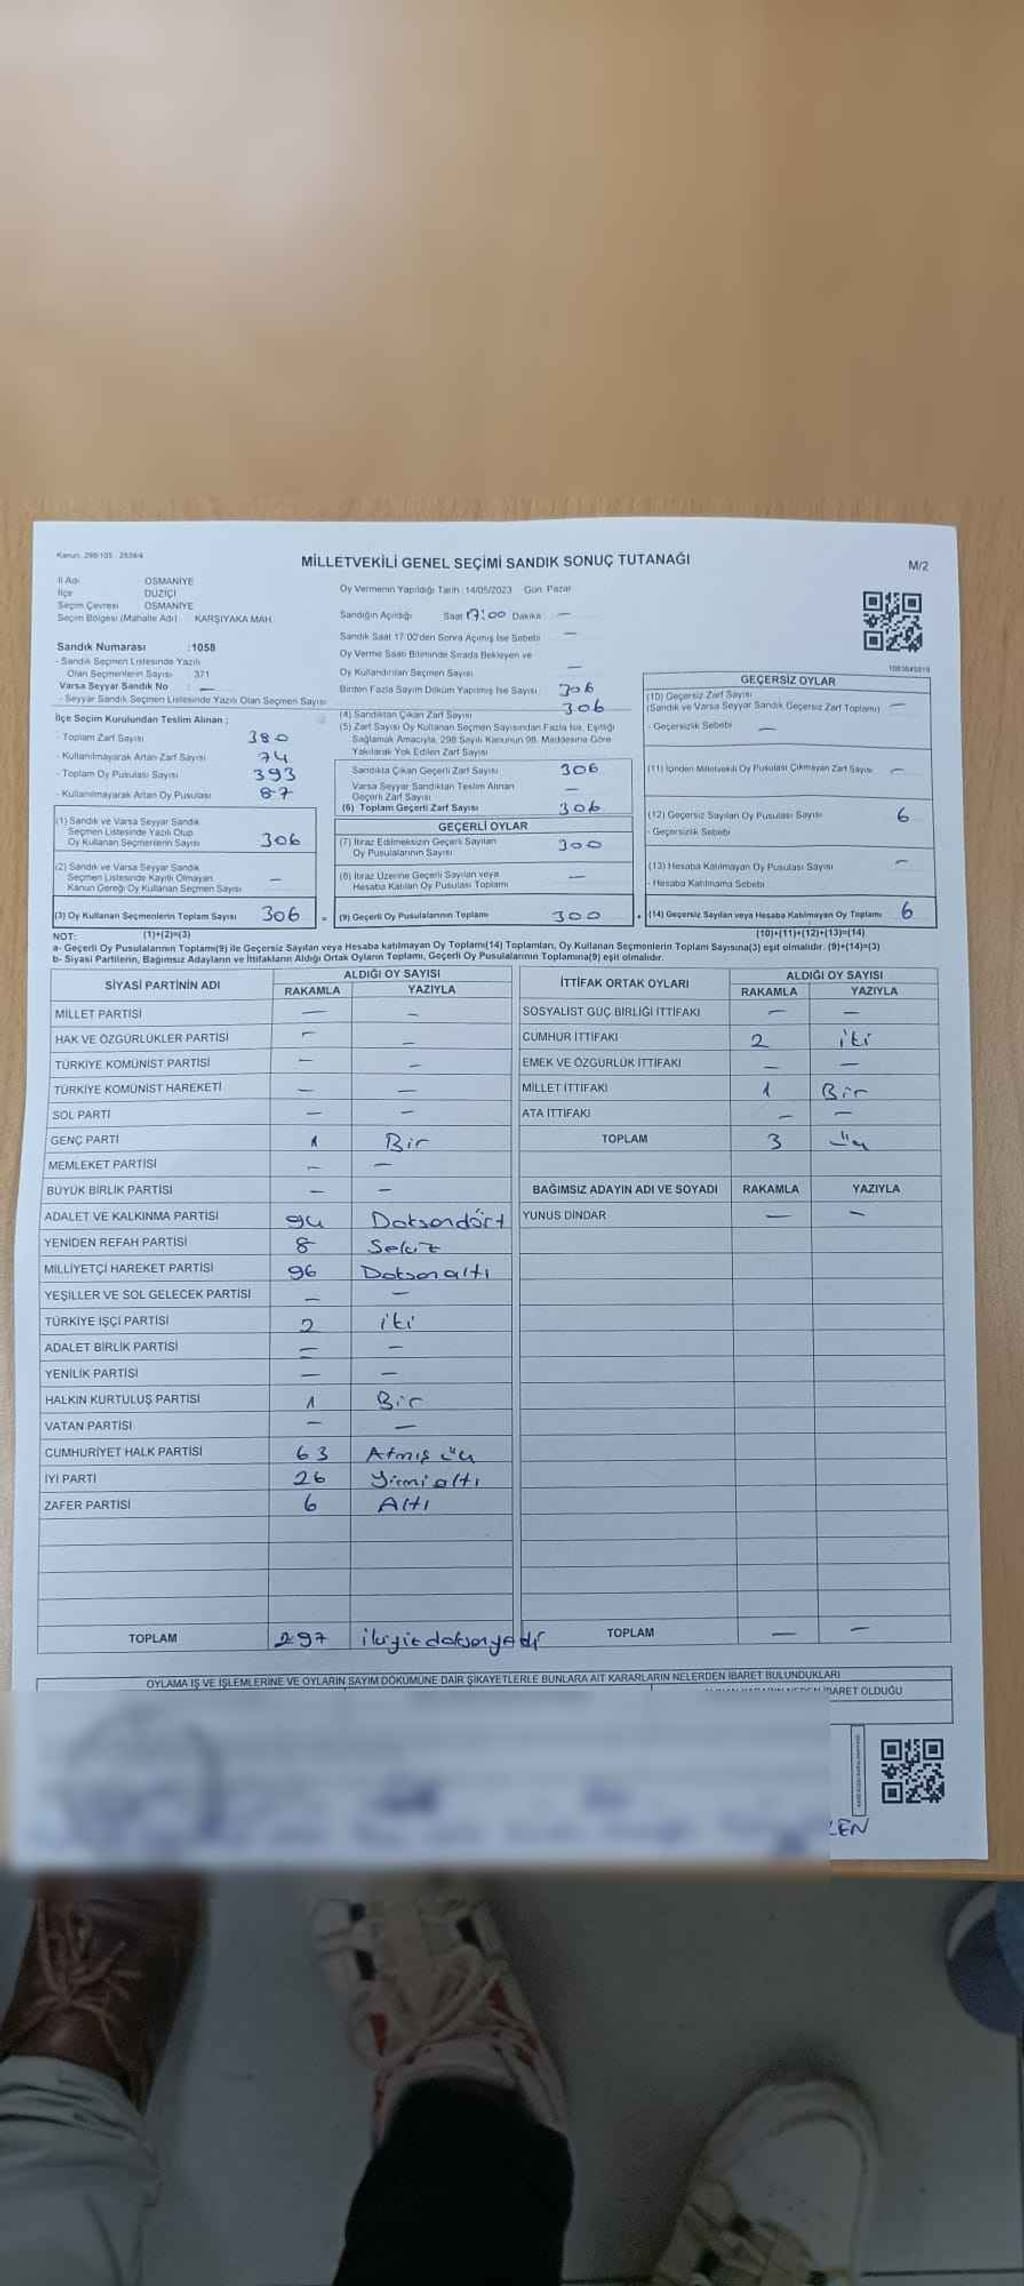 Kanun: 298/105 - 2839/4
MİLLETVEKİLİ GENEL SEÇİMİ SANDIK SONUÇ TUTANAĞI
M/2
İl Adı OSMANİYE
İlçe DÜZİÇİ
Seçim Çevresi OSMANİYE
Seçim Bölgesi (Mahalle Adı) KARŞIYAKA MAH.
Oy Vermenin Yapıldığı Tarih :14/05/2023 Gün: Pazar
Sandığın Açıldığı Saat 17:00 Dakika —
Sandık Saat 17:00'den Sonra Açılmış İse Sebebi —
Oy Verme Saati Bitiminde Sırada Bekleyen ve
Oy Kullandırılan Seçmen Sayısı —
Birden Fazla Sayım Döküm Yapılmış İse Sayısı 306
Sandık Numarası :1058
- Sandık Seçmen Listesinde Yazılı
Olan Seçmenlerin Sayısı 371
Varsa Seyyar Sandık No : —
- Seyyar Sandık Seçmen Listesinde Yazılı Olan Seçmen Sayısı
İlçe Seçim Kurulundan Teslim Alınan ;
- Toplam Zarf Sayısı 380
- Kullanılmayarak Artan Zarf Sayısı 74
- Toplam Oy Pusulası Sayısı 393
- Kullanılmayarak Artan Oy Pusulası 87
(1) Sandık ve Varsa Seyyar Sandık
Seçmen Listesinde Yazılı Olup
Oy Kullanan Seçmenlerin Sayısı 306
(2) Sandık ve Varsa Seyyar Sandık
Seçmen Listesinde Kayıtlı Olmayan
Kanun Gereği Oy Kullanan Seçmen Sayısı —
(3) Oy Kullanan Seçmenlerin Toplam Sayısı 306
(4) Sandıktan Çıkan Zarf Sayısı 306
(5) Zarf Sayısı Oy Kullanan Seçmen Sayısından Fazla İse, Eşitliği
Sağlamak Amacıyla, 298 Sayılı Kanunun 98. Maddesine Göre
Yakılarak Yok Edilen Zarf Sayısı
Sandıkta Çıkan Geçerli Zarf Sayısı 306
Varsa Seyyar Sandıktan Teslim Alınan
Geçerli Zarf Sayısı —
(6) Toplam Geçerli Zarf Sayısı 306
GEÇERLİ OYLAR
(7) İtiraz Edilmeksizin Geçerli Sayılan
Oy Pusulalarının Sayısı 300
(8) İtiraz Üzerine Geçerli Sayılan veya
Hesaba Katılan Oy Pusulası Toplamı —
(9) Geçerli Oy Pusulalarının Toplamı 300
GEÇERSİZ OYLAR
(10) Geçersiz Zarf Sayısı
(Sandık ve Varsa Seyyar Sandık Geçersiz Zarf Toplamı) —
- Geçersizlik Sebebi —
(11) İçinden Milletvekili Oy Pusulası Çıkmayan Zarf Sayısı —
(12) Geçersiz Sayılan Oy Pusulası Sayısı 6
- Geçersizlik Sebebi
(13) Hesaba Katılmayan Oy Pusulası Sayısı —
- Hesaba Katılmama Sebebi
(14) Geçersiz Sayılan veya Hesaba Katılmayan Oy Toplamı 6
NOT: (1)+(2)=(3) (10)+(11)+(12)+(13)=(14)
a- Geçerli Oy Pusulalarının Toplamı(9) ile Geçersiz Sayılan veya Hesaba katılmayan Oy Toplamı(14) Toplamları, Oy Kullanan Seçmenlerin Toplam Sayısına(3) eşit olmalıdır. (9)+(14)=(3)
b- Siyasi Partilerin, Bağımsız Adayların ve İttifakların Aldığı Ortak Oyların Toplamı, Geçerli Oy Pusulalarının Toplamına(9) eşit olmalıdır.
SİYASİ PARTİNİN ADI ALDIĞI OY SAYISI
RAKAMLA YAZIYLA
MİLLET PARTİSİ — —
HAK VE ÖZGÜRLÜKLER PARTİSİ — —
TÜRKİYE KOMÜNİST PARTİSİ — —
TÜRKİYE KOMÜNİST HAREKETİ — —
SOL PARTİ — —
GENÇ PARTİ 1 Bir
MEMLEKET PARTİSİ — —
BÜYÜK BİRLİK PARTİSİ — —
ADALET VE KALKINMA PARTİSİ 94 Doksandört
YENİDEN REFAH PARTİSİ 8 Sekiz
MİLLİYETÇİ HAREKET PARTİSİ 96 Doksanaltı
YEŞİLLER VE SOL GELECEK PARTİSİ — —
TÜRKİYE İŞÇİ PARTİSİ 2 iki
ADALET BİRLİK PARTİSİ — —
YENİLİK PARTİSİ — —
HALKIN KURTULUŞ PARTİSİ 1 Bir
VATAN PARTİSİ — —
CUMHURİYET HALK PARTİSİ 63 Atmış üç
İYİ PARTİ 26 Yirmi altı
ZAFER PARTİSİ 6 Altı
TOPLAM 297 ikiyüzdoksanyedi
İTTİFAK ORTAK OYLARI ALDIĞI OY SAYISI
RAKAMLA YAZIYLA
SOSYALİST GÜÇ BİRLİĞİ İTTİFAKI — —
CUMHUR İTTİFAKI 2 iki
EMEK VE ÖZGÜRLÜK İTTİFAKI — —
MİLLET İTTİFAKI 1 Bir
ATA İTTİFAKI — —
TOPLAM 3 üç
BAĞIMSIZ ADAYIN ADI VE SOYADI RAKAMLA YAZIYLA
YUNUS DİNDAR — —
TOPLAM — —
OYLAMA İŞ VE İŞLEMLERİNE VE OYLARIN SAYIM DÖKÜMÜNE DAİR ŞİKAYETLERLE BUNLARA AİT KARARLARIN NELERDEN İBARET BULUNDUKLARI
İBARET OLDUĞU
LEN